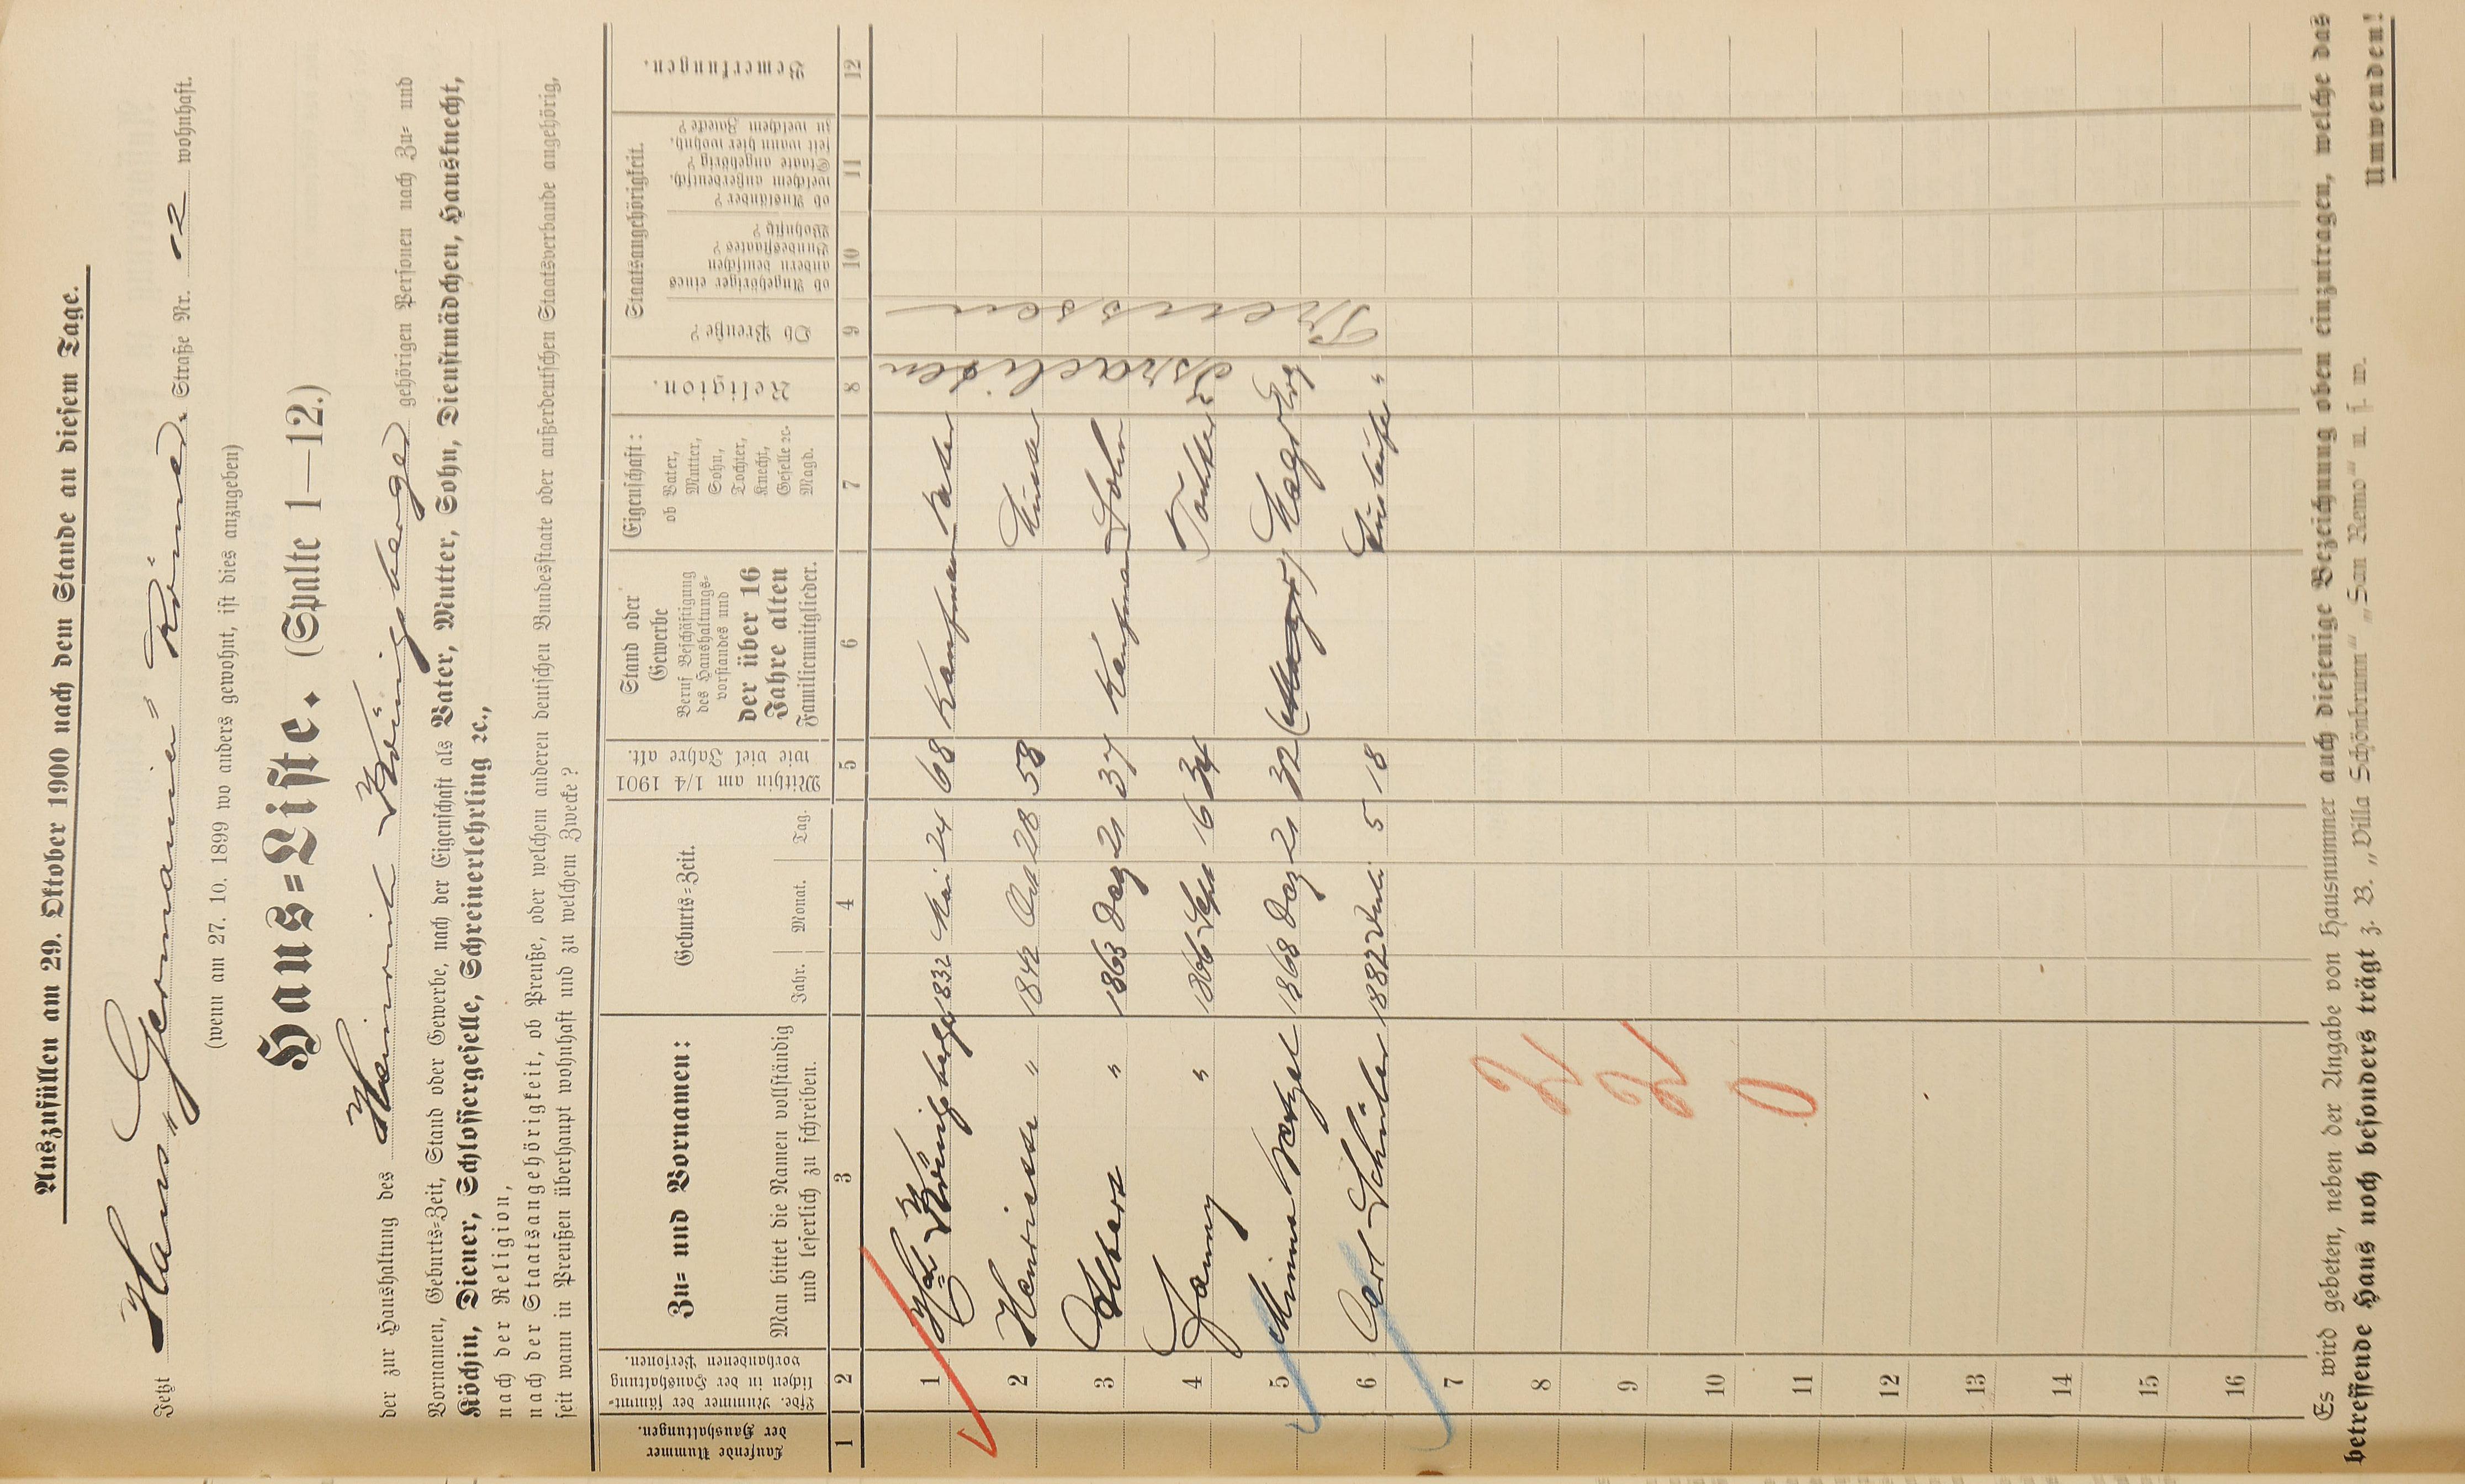 Auszufüllen am 29. Oktober 1900 nach dem Stande an diesem Tage.
Jetzt Haus „Germania“ Römer Straße Nr. 12 wohnhaft.
(wenn am 27. 10. 1899 wo anders gewohnt, ist dies anzugeben)
Haus=Liste. (Spalte 1—12.)
der zur Haushaltung des Heinrich Königsberger gehörigen Personen nach Zu= und
Vornamen, Geburts=Zeit, Stand oder Gewerbe, nach der Eigenschaft als Vater, Mutter, Sohn, Dienstmädchen, Hausknecht,
Köchin, Diener, Schlossergeselle, Schreinerlehrling ꝛc.,
nach der Religion,
nach der Staatsangehörigkeit, ob Preuße, oder welchem anderen deutschen Bundesstaate oder außerdeutschen Staatsverbande angehörig,
seit wann in Preußen überhaupt wohnhaft und zu welchem Zwecke?
Laufende Nummer der Haushaltungen.
Lfde. Nummer der sämmt-lichen in der Haushaltung vorhandenen Personen.
Zu= und Vornamen:
Man bittet die Namen vollständig und leserlich zu schreiben.
Geburts=Zeit.
Jahr. Monat. Tag.
Mithin am 1/4 1901 wie viel Jahre alt.
Stand oder Gewerbe
Beruf Beschäftigung des Haushaltungs-vorstandes und
der über 16 Jahre alten
Familienmitglieder.
Eigenschaft:
ob Vater, Mutter, Sohn, Tochter, Knecht, Geselle ꝛc. Magd.
Religion.
Staatsangehörigkeit.
Ob Preuße?
ob Angehöriger eines andern deutschen Bundesstaates? Wohnsitz?
ob Ausländer? welchem außerdeutsch. Staate angehörig? seit wann hier wohnh. zu welchem Zwecke?
Bemerkungen.
1 2 3 4 5 6 7 8 9 10 11 12
1 Königsberger 1832 Mai 24 68 Kaufmann Vater Israeliten Preussen
2 Henriette " 1842 Oct 28 58 Mutter
3 Albert " 1863 Dez 21 37 Kaufmann Sohn
4 Fanny " 1866 Sept 16 34 Tochter
5 Minna Wetzel 1868 Dez 21 32 (Magd) Magd Evg
6 Carl Schüler 1882 Juli 5 18 "
7
8
9
10
11
12
13
14
15
16
Es wird gebeten, neben der Angabe von Hausnummer auch diejenige Bezeichnung oben einzutragen, welche das
betreffende Haus noch besonders trägt z. B. „Villa Schönbrunn“ „San Remo“ u. s. w.
Umwenden!